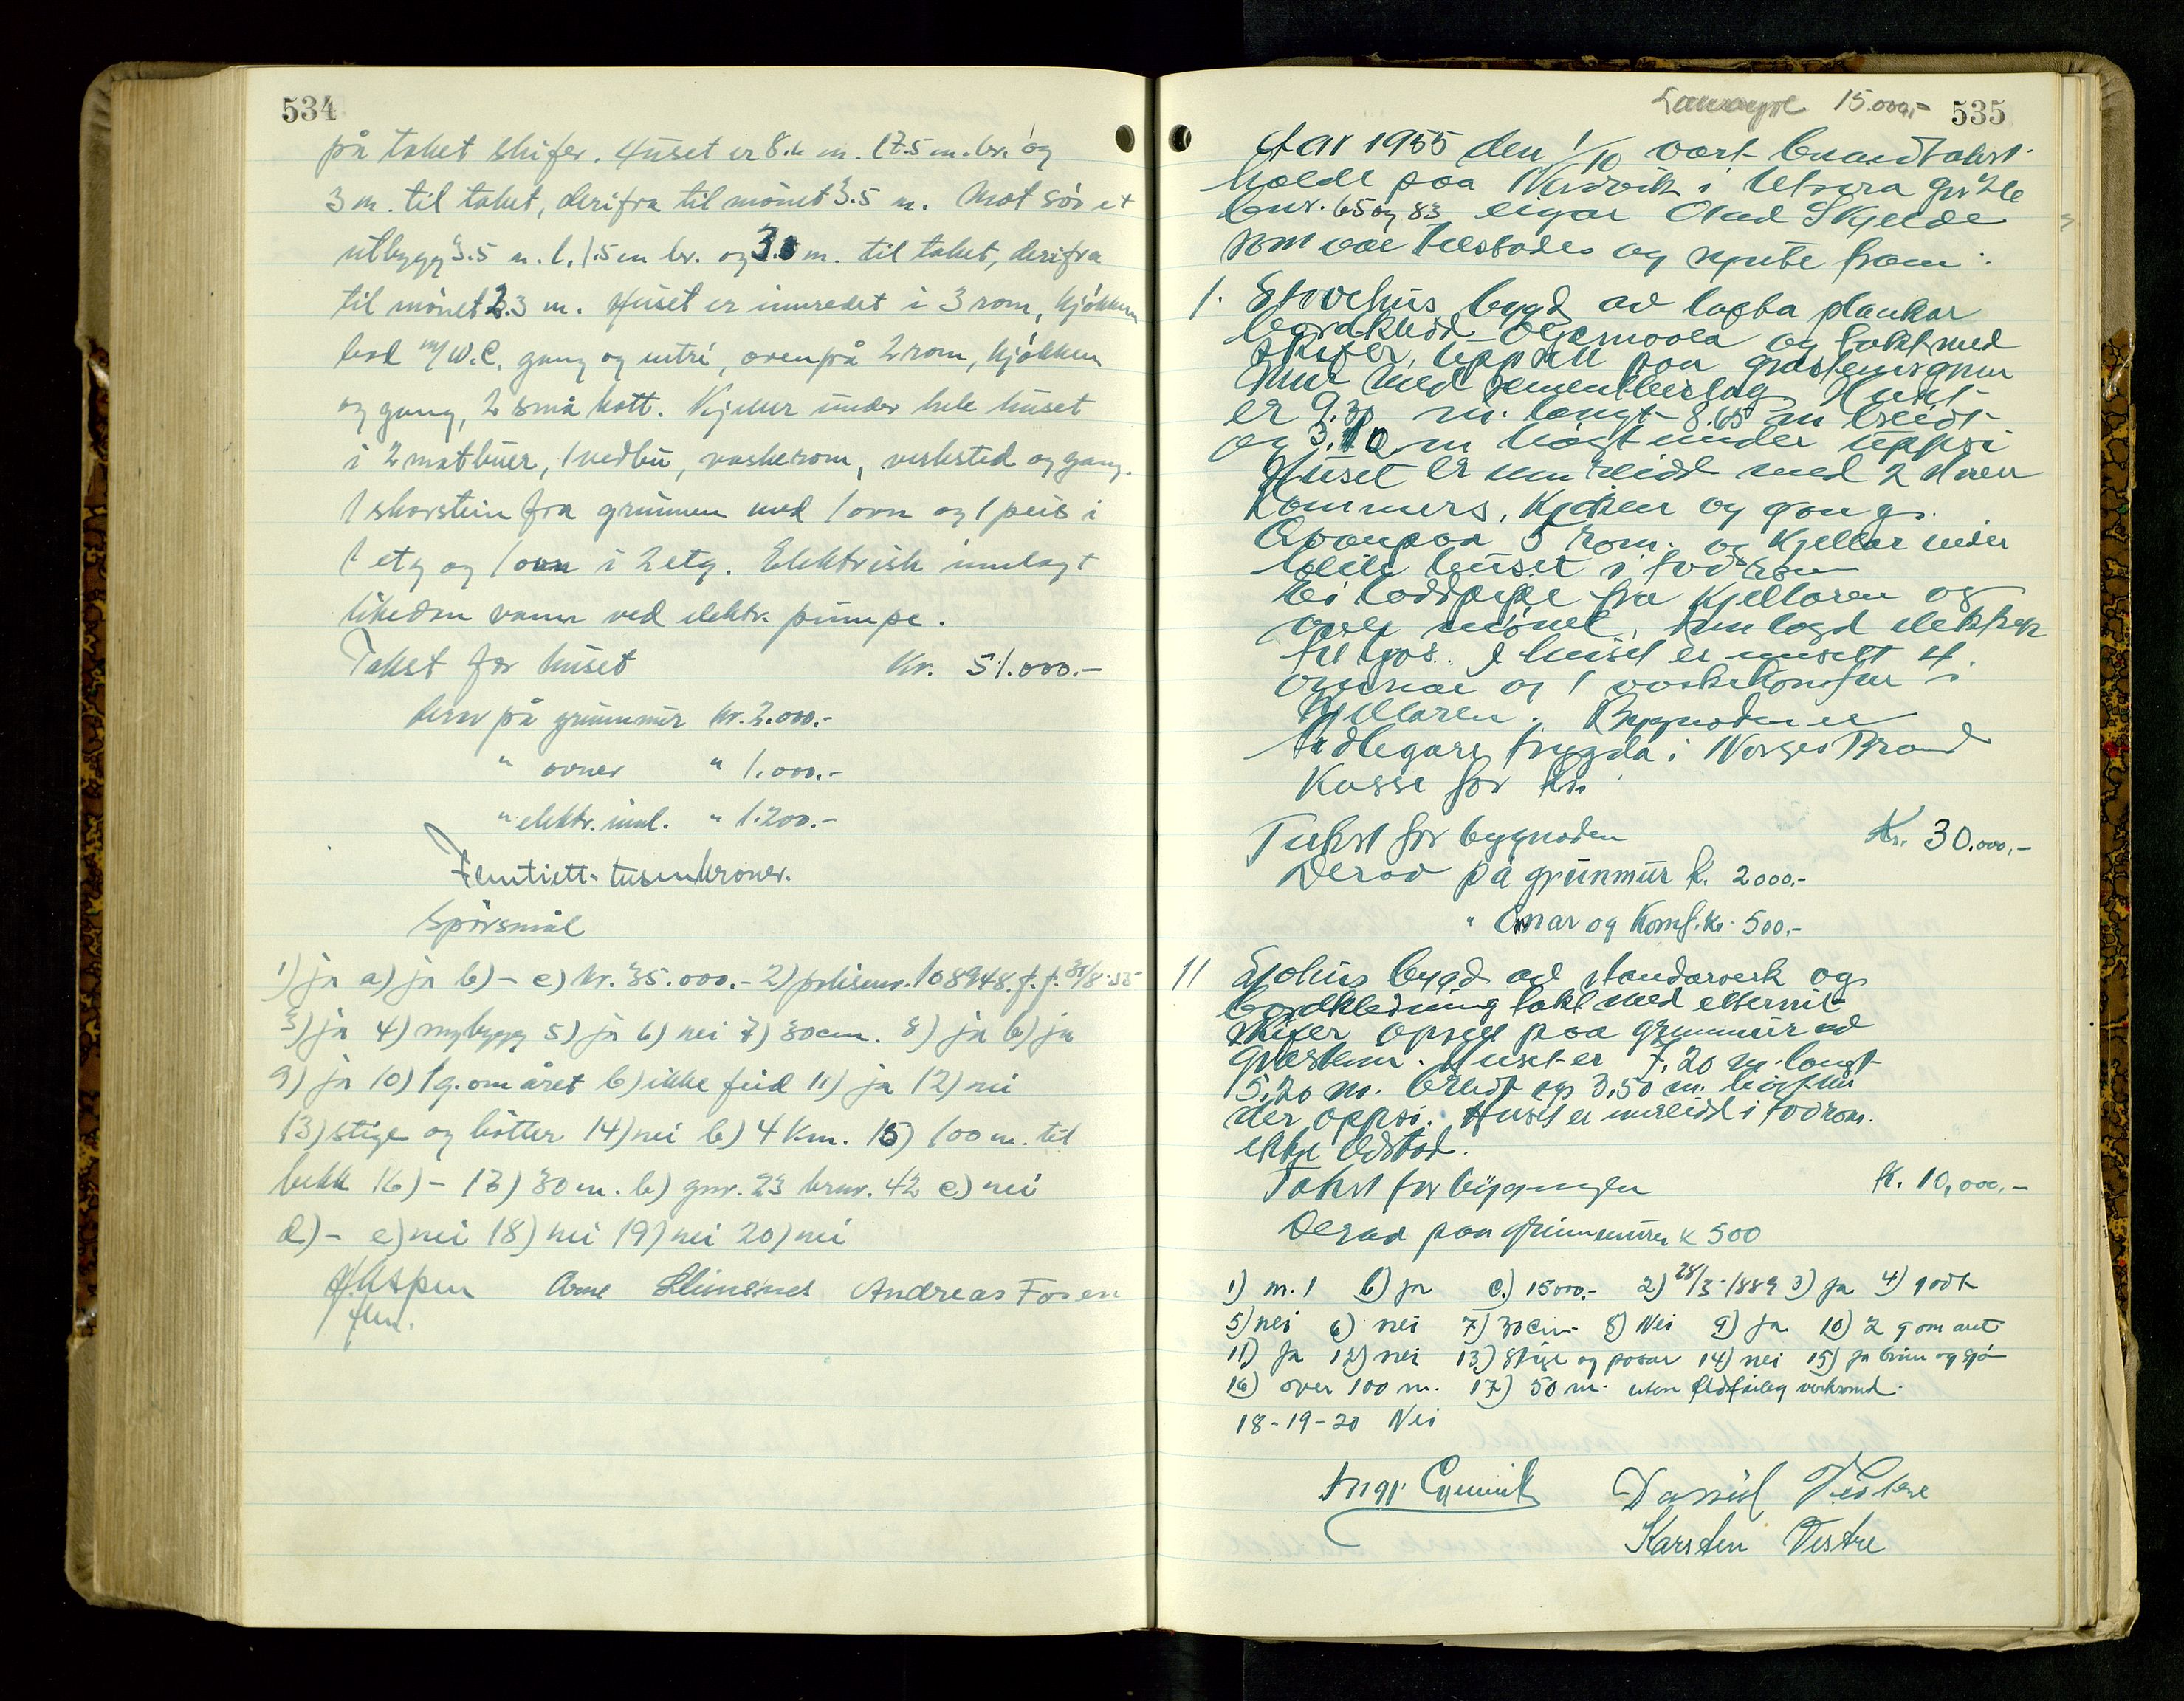 534
på taket skifer. Huset er 8.6 m. l 7.5 m. br. og
3 m. til taket, derifra til mönet 3.5 m. Mot sör et
utbygg 3.5 m. l. 1.5 m br. og 3.0 m. til taket, derifra
til mönet 2.3 m. Huset er innredet i 3 rom, kjökken
bad m/W.C. gang og entré, ovenpå 2 rom, kjökken
og gang, 2 små kott. Kjeller under hele huset
i 2 matbuer, 1 vedbu, vaskerom, verksted og gang.
1 skorstein fra grunnen med 1 ovn og 1 peis i
1 etg og 1 ovn i 2 etg. Elektrisk innlagt
likedan vann ved elektr. pumpe.
Takst for huset Kr. 51.000.-
derav på grunnmur kr. 2.000.-
" ovner " 1.000.-
" elektr. innl. " 1.200.-
tusenkroner.
Spörsmål
1) ja a) ja b) - c) kr. 35.000.- 2) polisenr. 108948 f. f. 31/8-55
3) ja 4) nybygg 5) ja 6) nei 7) 30 cm. 8) ja b) ja
9) ja 10) 1 g. om året b) ikke feid 11) ja 12) nei
13) stige og bötter 14) nei b) 4 Km. 15) 100 m. til
bekk 16) - 17) 30 m. b) gnr. 23 brnr. 42 c) nei
d) - e) nei 18) nei 19) nei 20) nei
H. Aspen Arne Andreas Fosen
fm.
15.000,- 535
Aar 1955 den 1/10 vart brandtakst
holdt paa Nordvik i Utvera
bnr. 65 og 83 eigar Olad Skjelde
som var tilstades og synte fram:
1. Stovehus bygd av lafta plankar
bordkledd oljemaala og takt med
skifer, uppsett paa graasteinsgrun
mur med sementbeslag. Huset
er 9.30 m. langt 8.65 m breidt
og 3.10 m högt under uppsi
Huset er innreidd med 2 stover
kommers, Kjöken og gong.
Ovenpaa 5 rom. og Kjellar under
heile huset i tvo rom
Ei loddpipe fra Kjellaren og
over mönet, innlagd elektrisk
til ljos. I huset er innsett 4
omnar og 1 vaskekomfur i
Kjellaren. Bygnaden er
tidlegare trygda i Norges Brand
Kasse for kr.
Takst for bygnaden Kr. 30.000,-
Derav på grunmur k. 2000.-
" Omnar og Komf. kr. 500.-
11 Sjohus bygd av standarverk og
bordkledning takt med etternit-
skifer opsett paa grunmur ad
graastein. Huset er 7,20 m. langt
5,20 m. breidt og 3,50 m. högt un
der oppsi. Huset er innreidd i tvo rom.
ikkje eldstad.
Takst for bygningen K. 10,000,-
Derav paa grunnmuren K 500
1) m. 1 b) ja c.) 15000.- 2) 28/3-1889 3) ja 4) godt
5) nei 6) nei 7) 30 cm 8) Nei 9) ja 10) 2 g om aret
11) ja 12) nei 13) Stige og posar 14) nei 15) ja brun og sjö
16) over 100 m. 17) 50 m. uten eldfarleg verksemd.
18-19-20 Nei
Daniel Vestre
Karsten Vestre